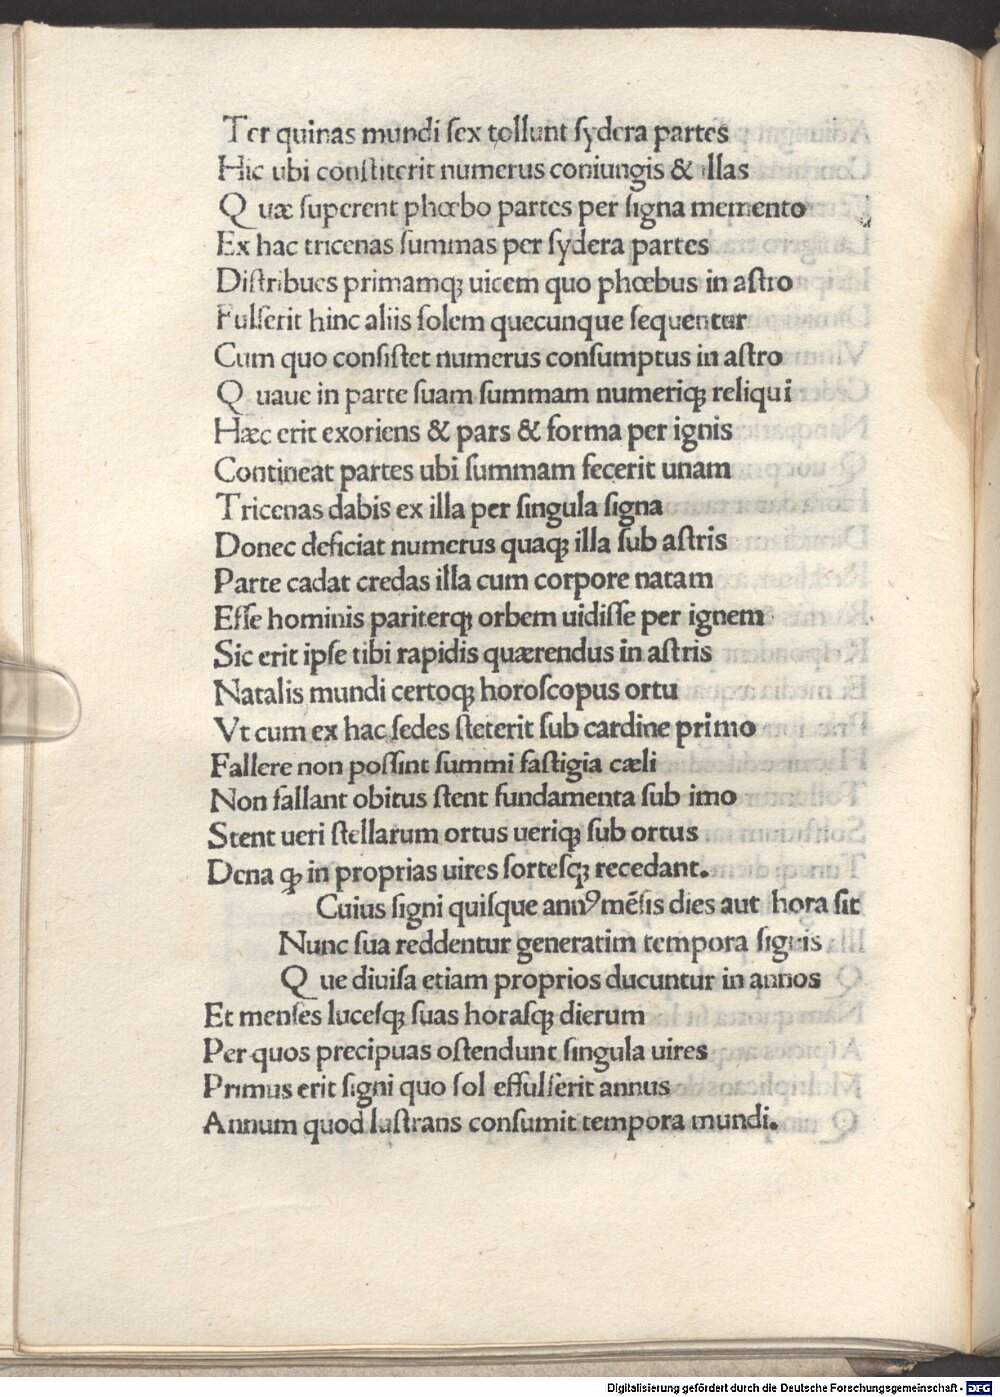 Ter quinas mundi ſex tollunt ſydera partes
Hic ubi conſtiterit numerus coniungis & illas
Q uæ ſuperent phœbo partes per ſigna memento
Ex hac tricenas ſummas per ſydera partes
Diſtribues primamq; uicem quo phœbus in aſtro
Fulſerit hinc aliis ſolem quecunque ſequentur
Cum quo conſiſtet numerus conſumptus in aſtro
Q uaue in parte ſuam ſummam numeriq; reliqui
Hæc erit exoriens & pars & forma per ignis
Contineat partes ubi ſummam fecerit unam
Tricenas dabis ex illa per ſingula ſigna
Donec deficiat numerus quaq; illa ſub aſtris
Parte cadat credas illa cum corpore natam
Eſſe hominis pariterq; orbem uidiſſe per ignem
Sic erit ipſe tibi rapidis quærendus in aſtris
Natalis mundi certoq; horoſcopus ortu
Vt cum ex hac ſedes ſteterit ſub cardine primo
Fallere non poſſint ſummi faſtigia cæli
Non fallant obitus ſtent fundamenta ſub imo
Stent ueri ſtellarum ortus ueriq; ſub ortus
Dena q; in proprias uires ſorteſq; recedant.
Cuius ſigni quiſque annꝰ mēſis dies aut hora ſit
Nunc ſua reddentur generatim tempora ſignis
Q ue diuiſa etiam proprios ducuntur in annos
Et menſes luceſq; ſuas horaſq; dierum
Per quos precipuas oſtendunt ſingula uires
Primus erit ſigni quo ſol effulſerit annus
Annum quod luſtrans conſumit tempora mundi.
Digitalisierung gefördert durch die Deutsche Forschungsgemeinschaft - DFG